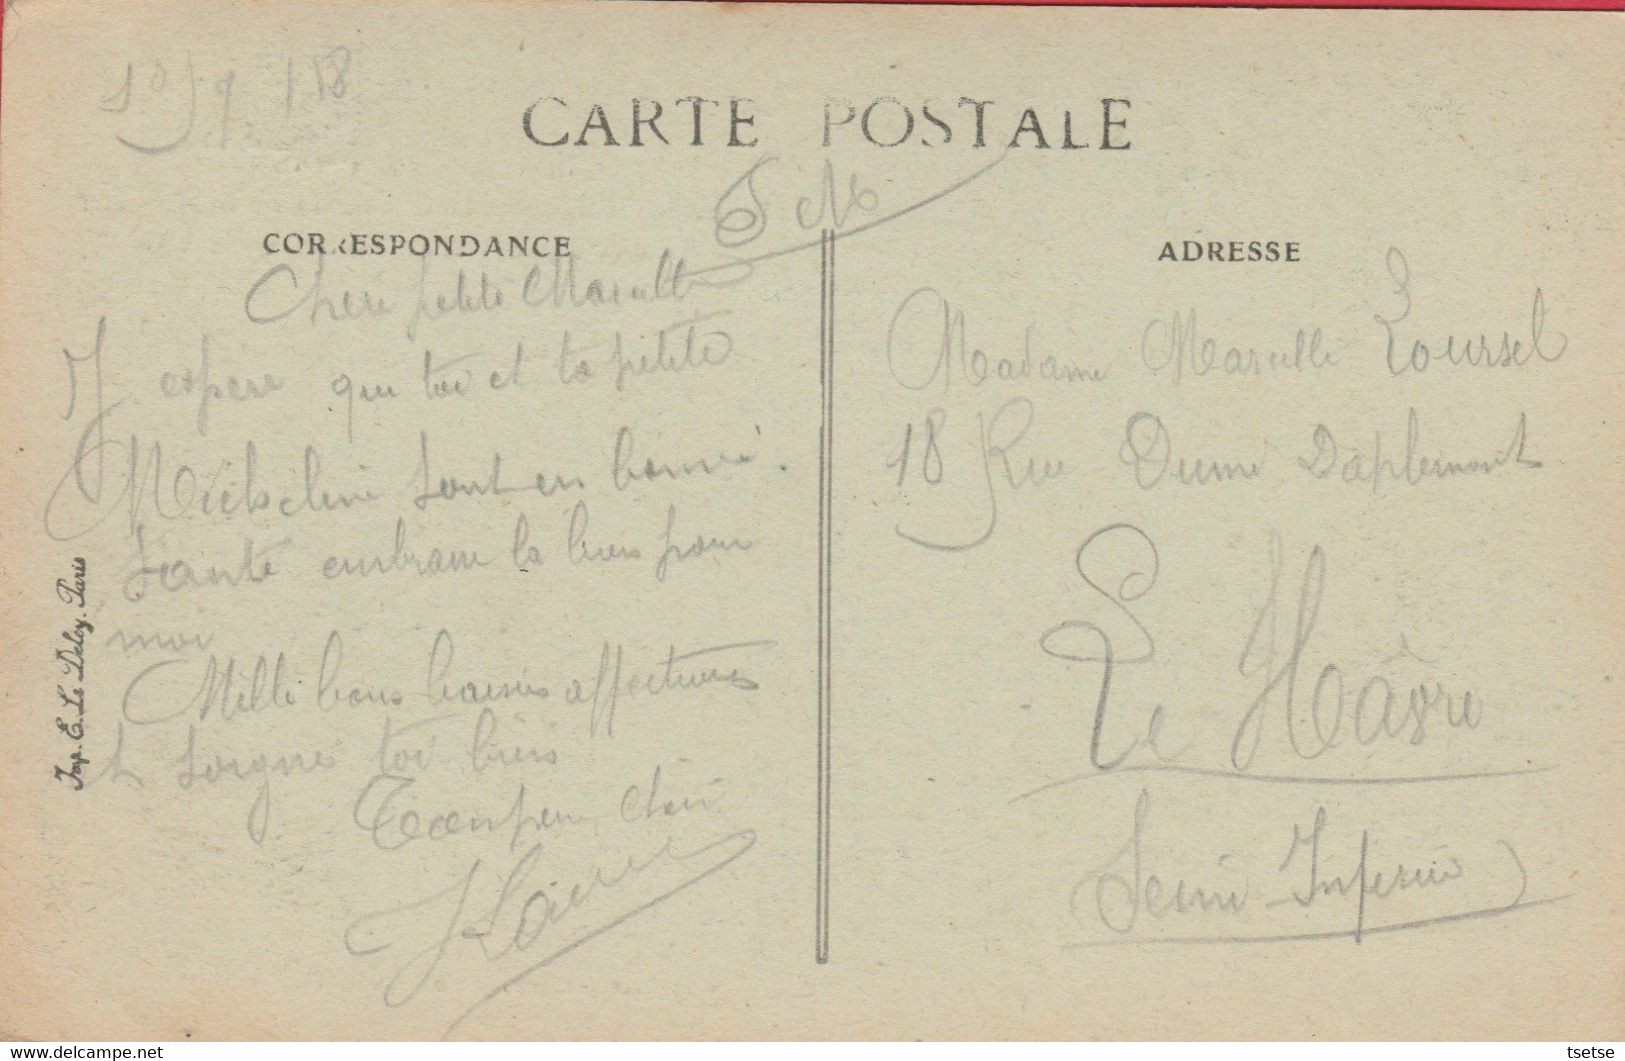 CARTE POSTALE
CORRESPONDANCE
ADRESSE
Chere petite Marcelle
J'espere que toi et ta petite
Micheline sont en bonne
Santé embrasse la bien pour
moi
Mille bons baisers affectueux
et soignes toi bien
Ton
Madame Marcelle Loursel
18 Rue Dumé Daplemont
Le Hâvre
Seine Inferieure
Imp. E. Le Deley. Paris
delcampe.net
tsetse